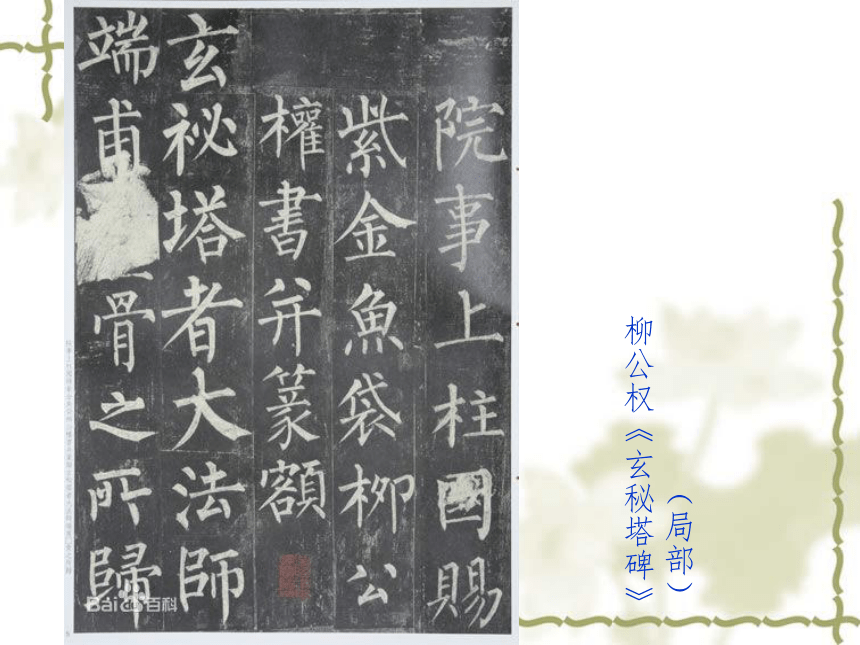 院事上柱國賜
紫金魚袋柳公
權書并篆額
玄秘塔者大法師
端甫骨之所歸
柳公权《玄秘塔碑》
（局部）
Bai百科